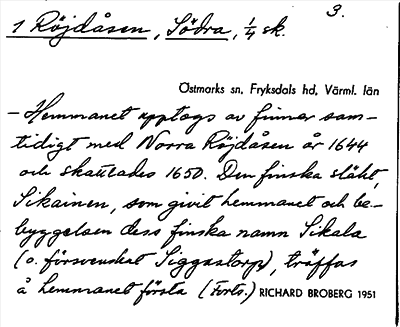 3.
1 Röjdåsen, Södra, 1/4 sk.
Östmarks sn, Fryksdals hd, Värml. län
– Hemmanet upptogs av finnar sam-
tidigt med Norra Röjdåsen år 1644
och skattlades 1650. Den finska släkt,
Sikainen, som givit hemmanet och be-
byggelsen dess finska namn Sikala
(o. försvenskat Siggastorp), träffas
å hemmanet första (Forts.) RICHARD BROBERG 1951